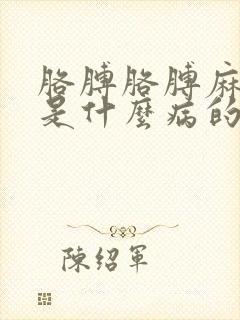 胳膊胳膊麻
是什麼病的
陳紹軍